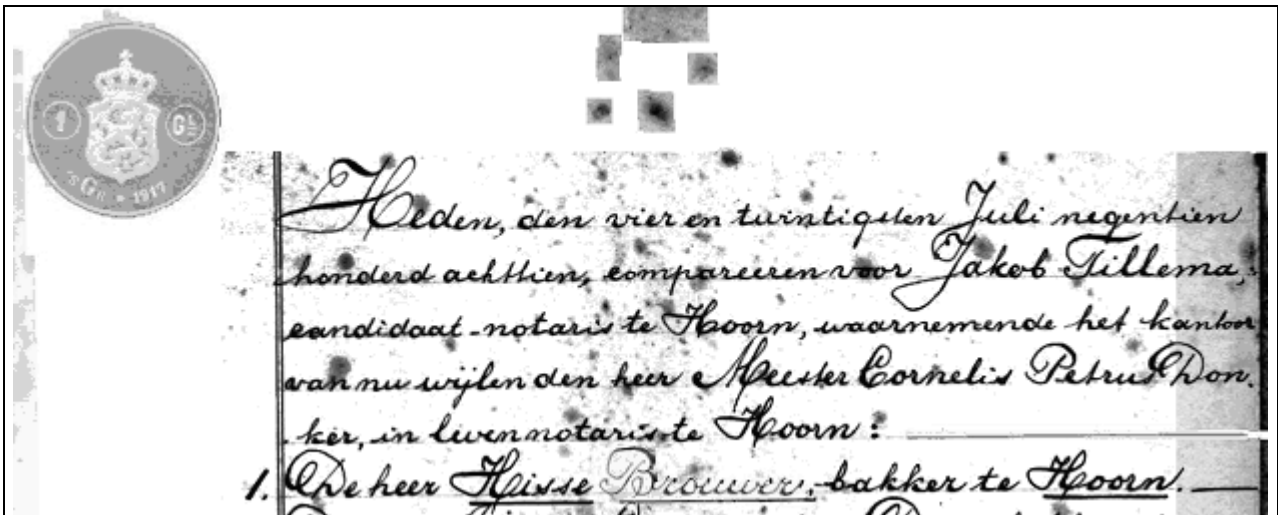 1 GLD
'S GR • 1917
Heden, den vier en twintigsten Juli negentien
honderd achttien, compareeren voor Jakob Tillema,
candidaat-notaris te Hoorn, waarnemende het kantoor
van nu wijlen den heer Meester Cornelis Petrus Don-
ker, in leven notaris te Hoorn:
1. De heer Hisse Brouwer, bakker te Hoorn.